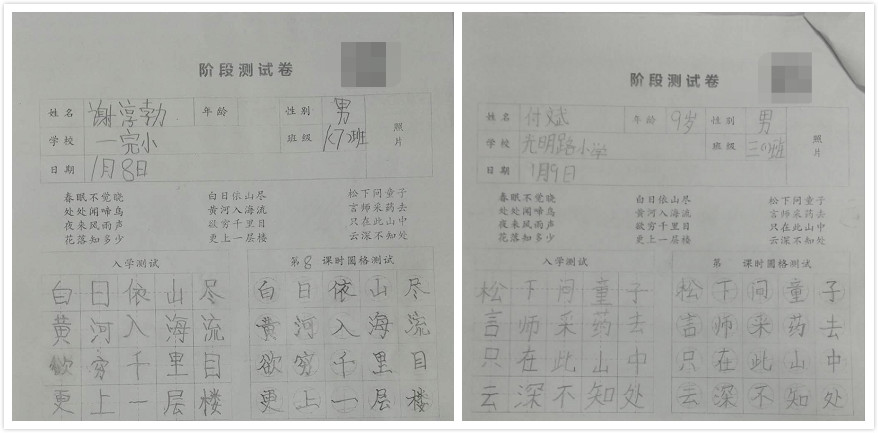 阶段测试卷
姓名 谢淳勃 年龄 性别 男
学校 一完小 班级 班 照片
日期 1月8日
春眠不觉晓 白日依山尽 松下问童子
处处闻啼鸟 黄河入海流 言师采药去
夜来风雨声 欲穷千里目 只在此山中
花落知多少 更上一层楼 云深不知处
入学测试 第8课时圆格测试
白日依山尽 白日依山尽
黄河入海流 黄河入海流
欲穷千里目 欲穷千里目
更上一层楼 更上一层楼
阶段测试卷
姓名 付斌 年龄 9岁 性别 男
学校 光明路小学 班级 三(1)班 照片
日期 1月9日
春眠不觉晓 白日依山尽 松下问童子
处处闻啼鸟 黄河入海流 言师采药去
夜来风雨声 欲穷千里目 只在此山中
花落知多少 更上一层楼 云深不知处
入学测试 第 课时圆格测试
松下问童子 松下问童子
言师采药去 言师采药去
只在此山中 只在此山中
云深不知处 云深不知处